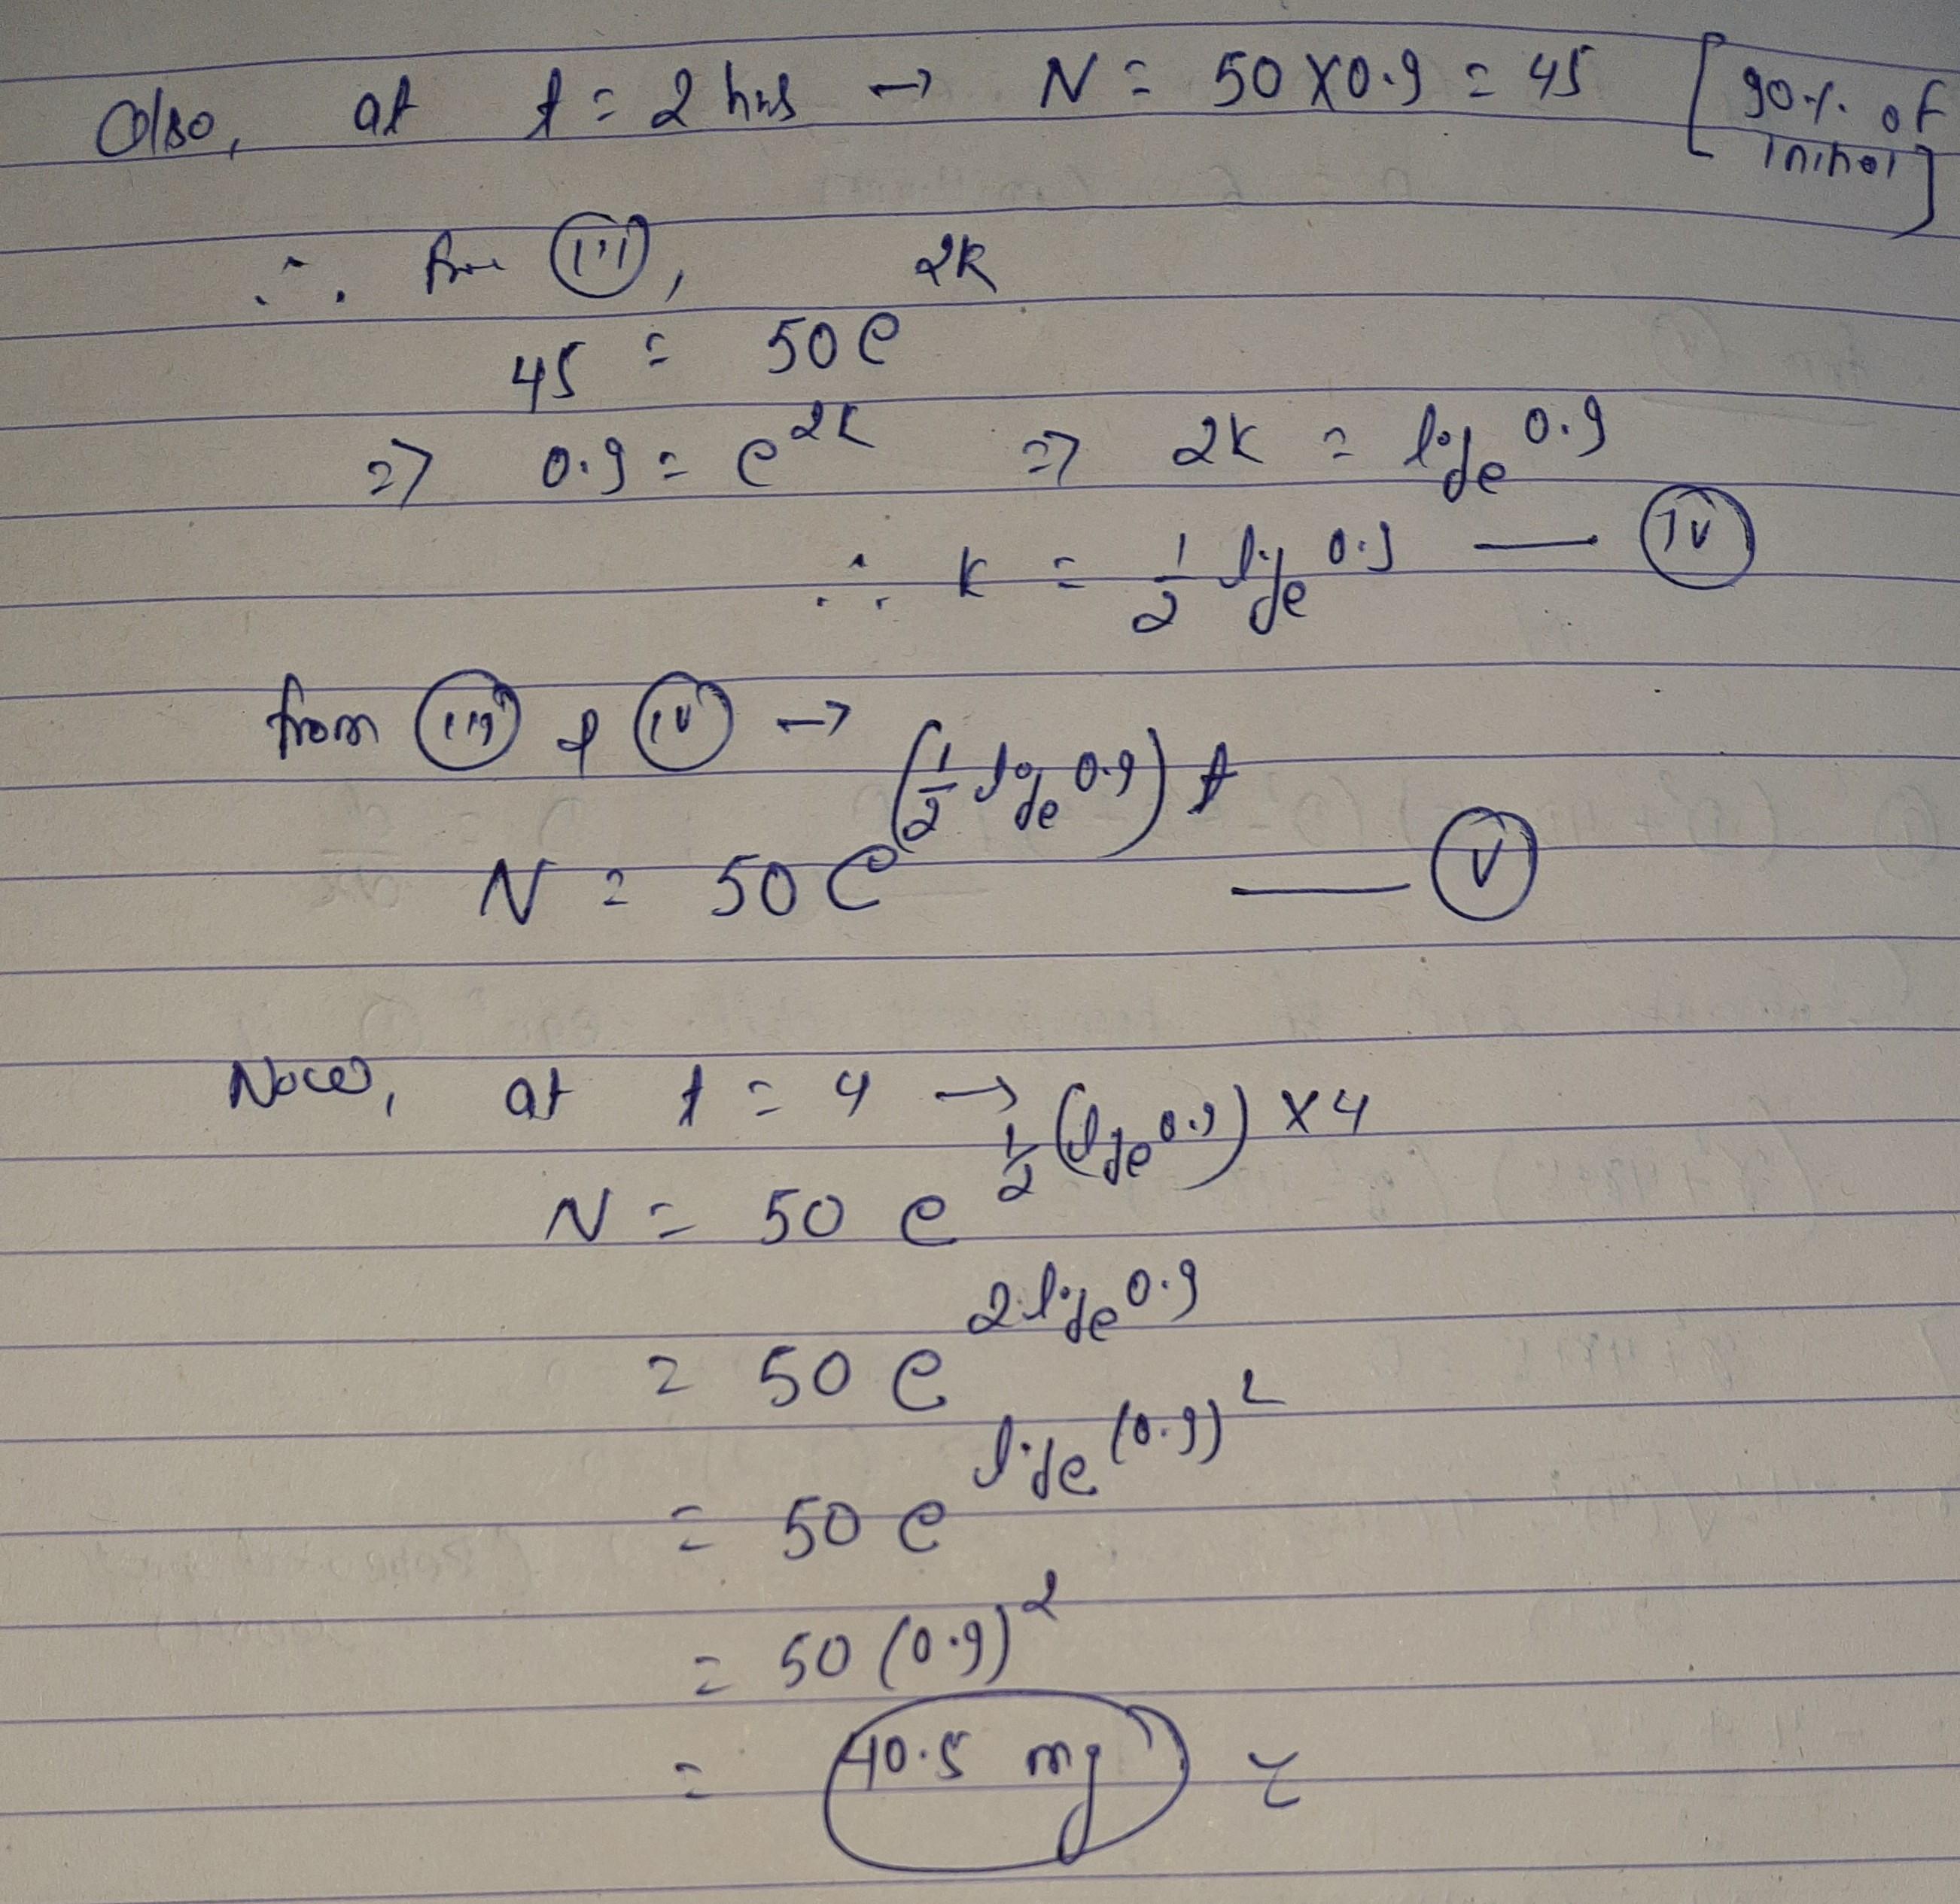 Also, at t = 2 hrs → N = 50 X 0.9 = 45 [90% of initial]
∴ from (iii),
45 = 50 e^{2k}
=> 0.9 = e^{2k} => 2k = log_e 0.9
∴ k = 1/2 log_e 0.9 — (iv)
from (iii) & (iv) →
N = 50 e^{(1/2 log_e 0.9) t} — (v)
Now, at t = 4 →
N = 50 e^{1/2 (log_e 0.9) X 4}
= 50 e^{2 log_e 0.9}
= 50 e^{log_e (0.9)^2}
= 50 (0.9)^2
= 40.5 mg